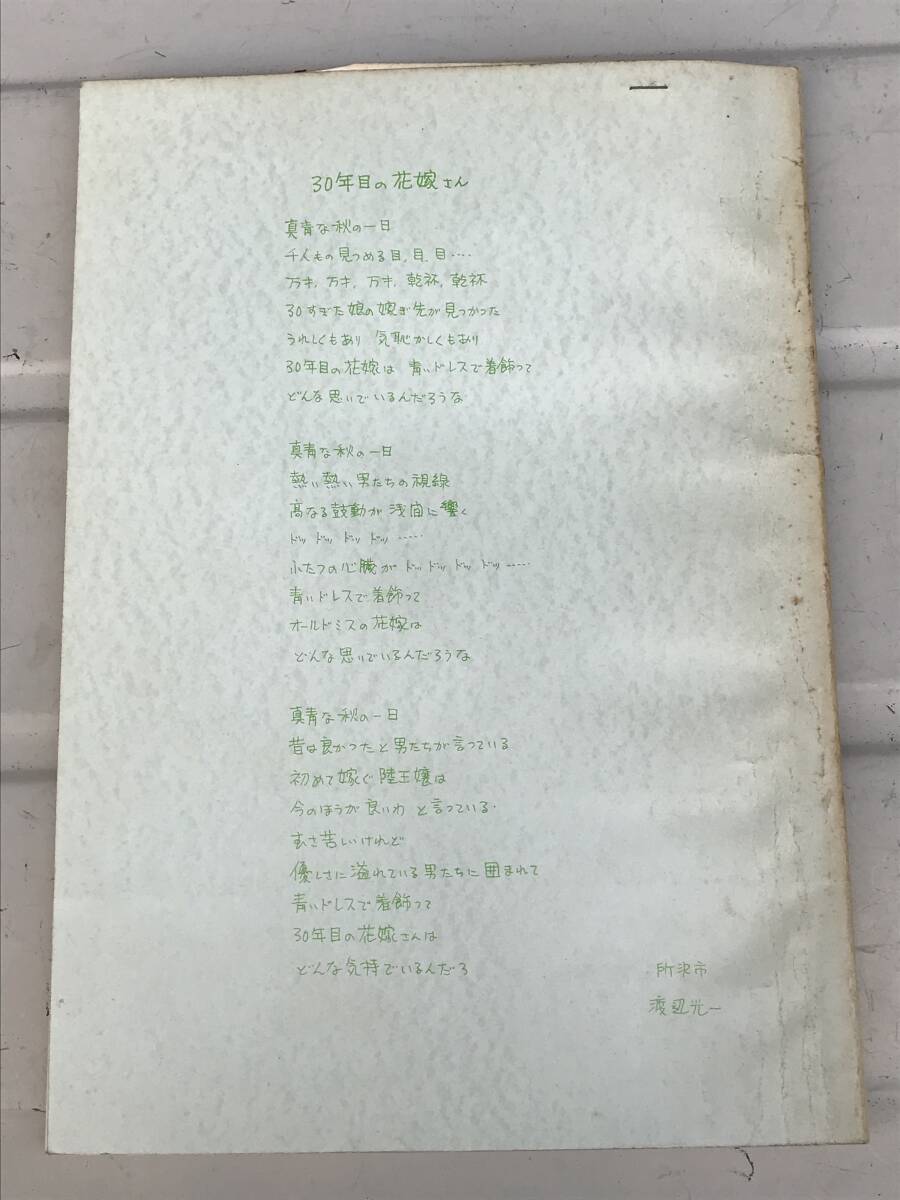 30年目の花嫁さん
真青な秋の一日
千人もの見つめる目,目,目‥‥
万才,万才,万才,乾杯,乾杯
30すぎた娘の嫁ぎ先が見つかった
うれしくもあり 気恥かしくもあり
30年目の花嫁は 青いドレスで着飾って
どんな思いでいるんだろうな
真青な秋の一日
熱い熱い男たちの視線
高なる鼓動が浅間に響く
ドッ ドッ ドッ ドッ ‥‥‥
ふたつの心臓が ドッ ドッ ドッ ドッ ‥‥‥
青いドレスで着飾って
オールドミスの花嫁は
どんな思いでいるんだろうな
真青な秋の一日
昔は良かったと男たちが言っている
初めて嫁ぐ陸王嬢は
今のほうが良いわ と言っている.
むさ苦しいけれど
優しさに溢れている男たちに囲まれて
青いドレスで着飾って
30年目の花嫁さんは
どんな気持でいるんだろ
所沢市
渡辺光一